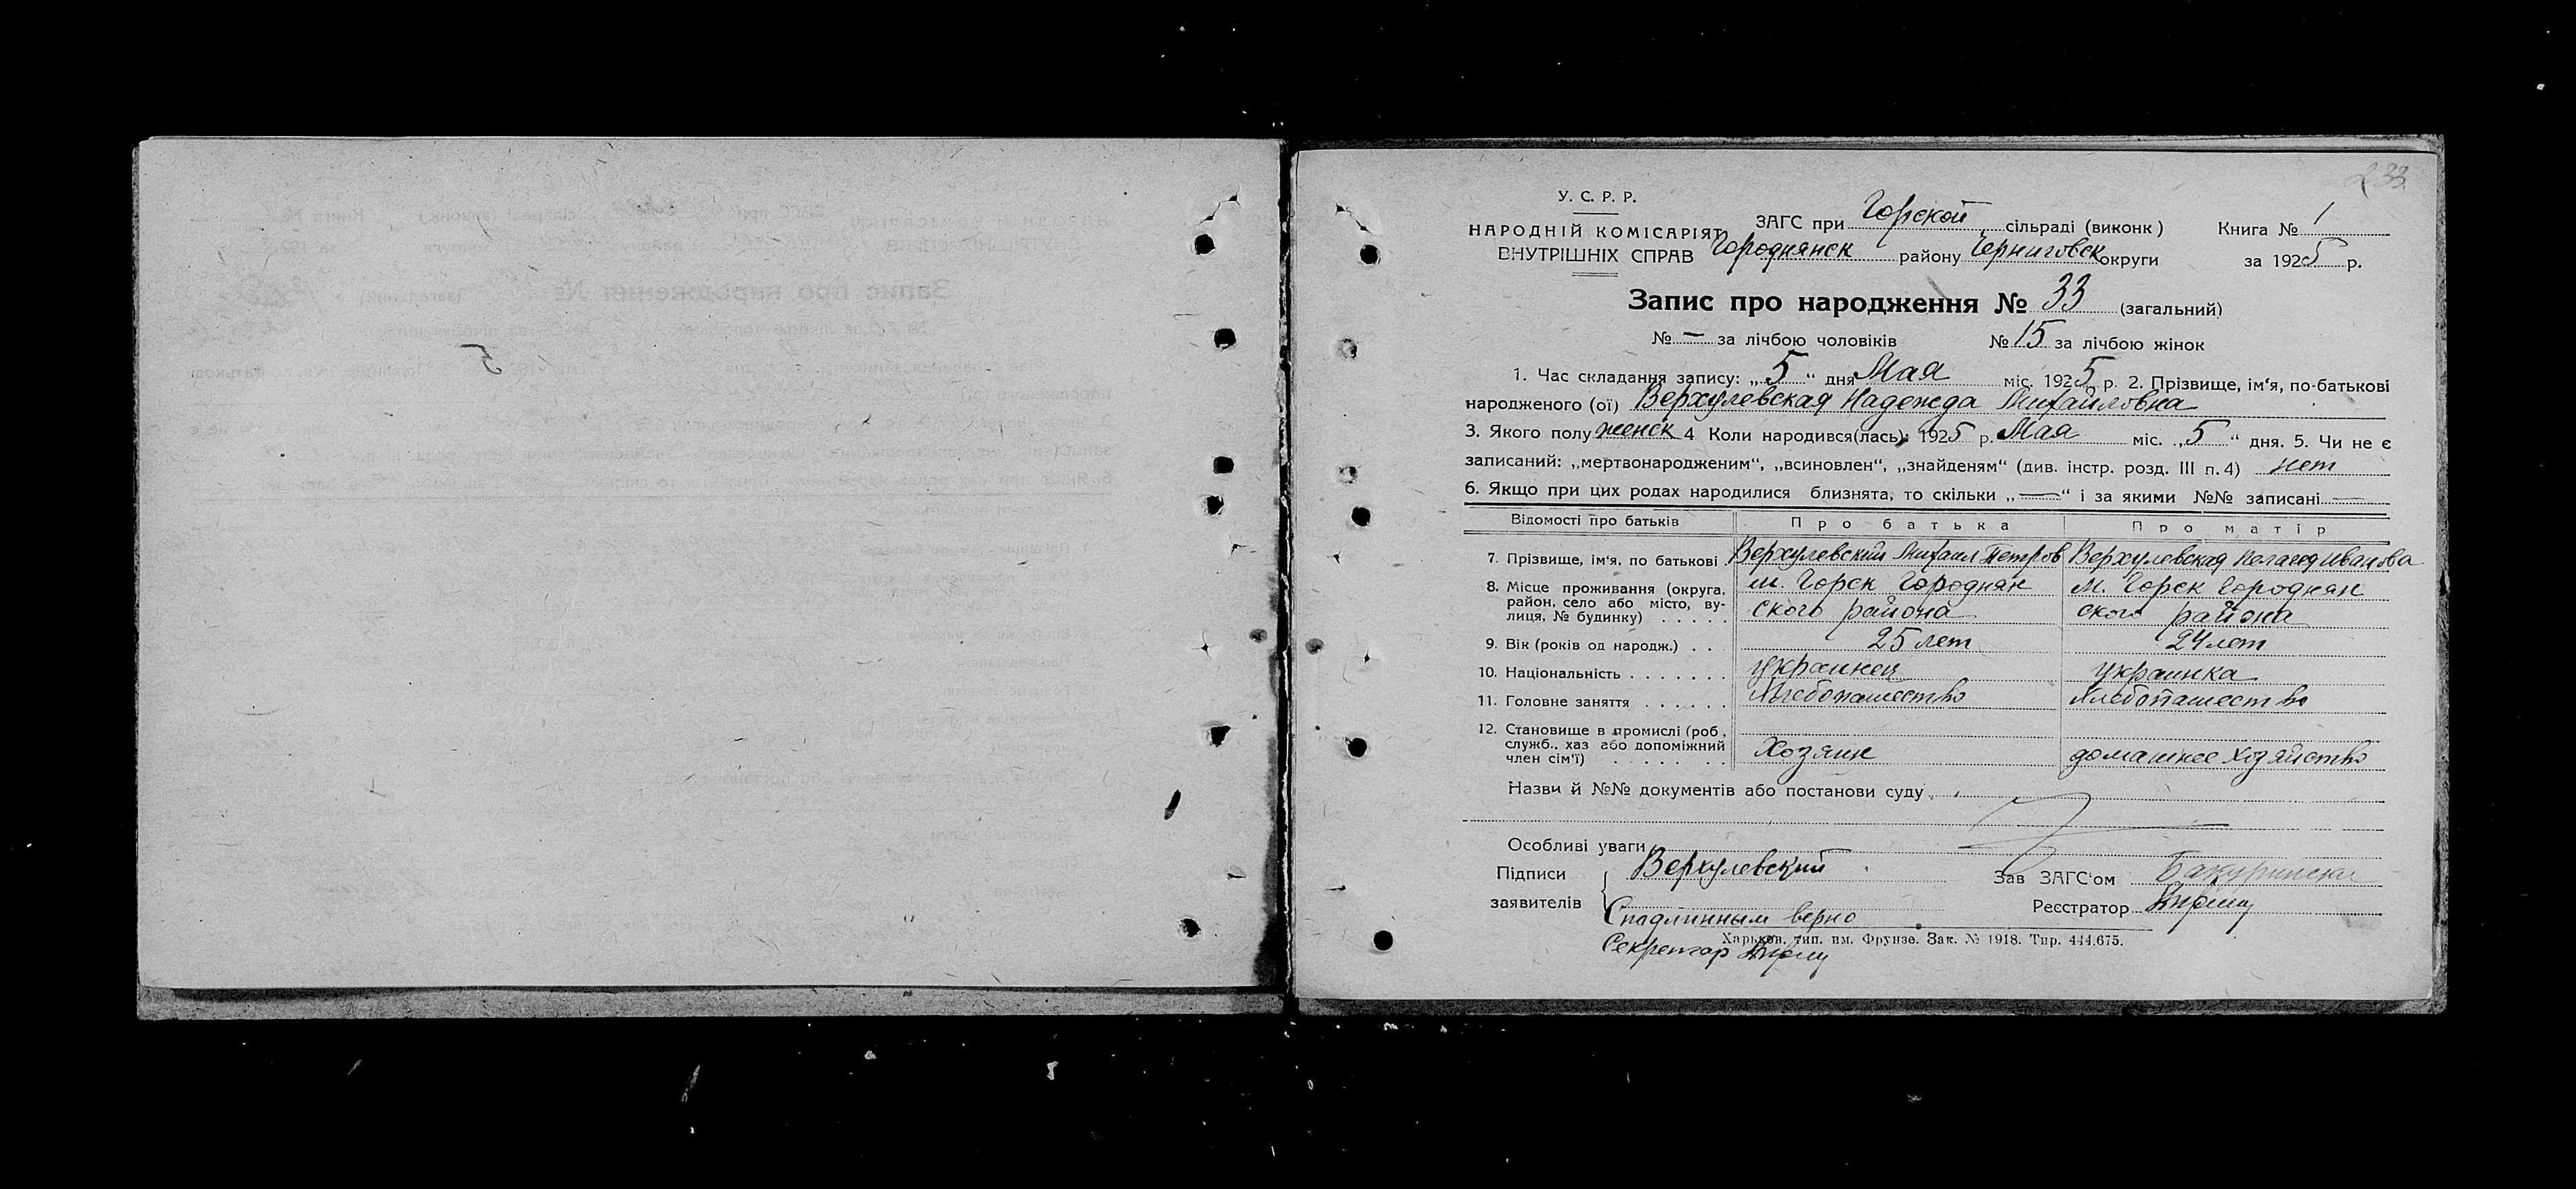 233
У. С. Р. Р.
НАРОДНІЙ КОМІСАРІЯТ
ВНУТРІШНІХ СПРАВ
ЗАГС при Горской сільраді (виконк) Книга № 1
Городнянск району Черниговск округи за 1925 р.
Запис про народження № 33 (загальний)
№ — за лічбою чоловіків № 15 за лічбою жінок
1. Час складання запису: „5“ дня Мая міс. 1925 р. 2. Прізвище, ім‘я, по-батькові
народженого (ої) Верхулевская Надежда Михайловна
3. Якого полу женск 4 Коли народився(лась): 1925 р. Мая міс. „5“ дня. 5. Чи не є
записаний: „мертвонародженим“, „всиновлен“, „знайденям“ (див. інстр. розд. III п. 4) нет
6. Якщо при цих родах народилися близнята, то скільки „—“ і за якими №№ записані —
Відомості про батьків Про батька Про матір
7. Прізвище, ім‘я, по батькові Верхулевский Михаил Петров Верхулевская Иванова
8. Місце проживання (округа, район, село або місто, вулиця, № будинку)
м. Горск Городнян м. Горск Городнян
ского района ского района
9. Вік (років од народж.) 25 лет 24 лет
10. Національність украинец украинка
11. Головне заняття Хлебопашество Хлебопашество
12. Становище в промислі (роб, служб., хаз або допоміжний член сім‘ї) Хозяин домашнее хозяйство
Назви й №№ документів або постанови суду
Особливі уваги
Підписи Верхулевский Зав ЗАГС‘ом
заявителів Реєстратор
С подлинным верно
Харьков. тип. им. Фрунзе. Зак. № 1918. Тир. 444.675.
Секретар